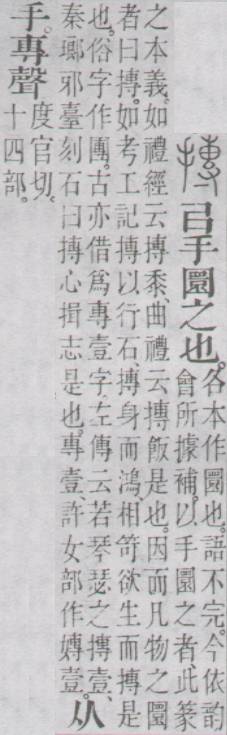 摶 㠯手圜之也。各本作圜也。語不完。今依韵
會所據補。以手圜之者、此篆
之本義。如禮經云摶黍、曲禮云摶飯是也。因而凡物之圜
者曰摶。如考工記摶以行石、摶身而鴻、相笴欲生而摶是
也。俗字作團。古亦借爲專壹字。左傳云若琴瑟之摶壹、
秦瑯邪臺刻石曰摶心揖志是也。專壹、許女部作嫥壹。从
手。專聲。度官切。
十四部。